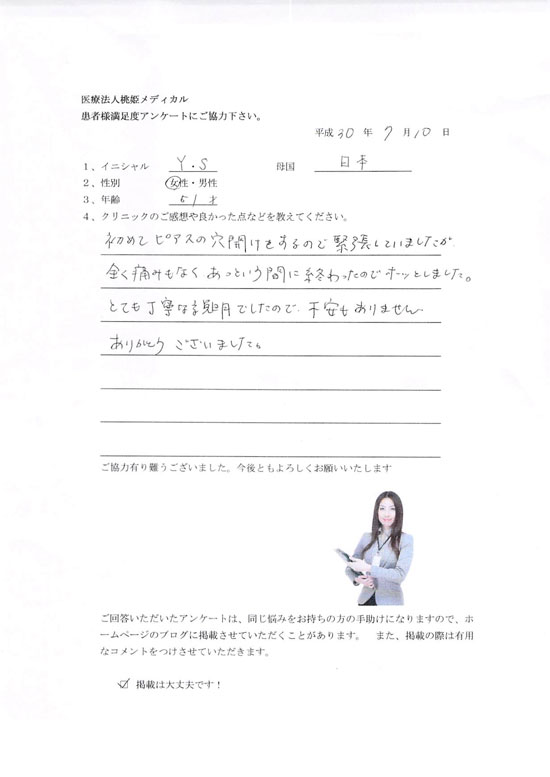 医療法人桃姫メディカル
患者様満足度アンケートにご協力下さい。
平成 30 年 7 月 10 日
1、イニシャル Y・S 母国 日本
2、性別 女性・男性
3、年齢 51才
4、クリニックのご感想や良かった点などを教えてください。
初めてピアスの穴開けをするので緊張していましたが
全く痛みもなく あっという間に終わったのでホーッとしました。
とても丁寧な説明でしたので、不安もありません
ありがとうございました。
ご協力有り難うございました。今後ともよろしくお願いいたします
ご回答いただいたアンケートは、同じ悩みをお持ちの方の手助けになりますので、ホ
ームページのブログに掲載させていただくことがあります。 また、掲載の際は有用
なコメントをつけさせていただきます。
☑ 掲載は大丈夫です！